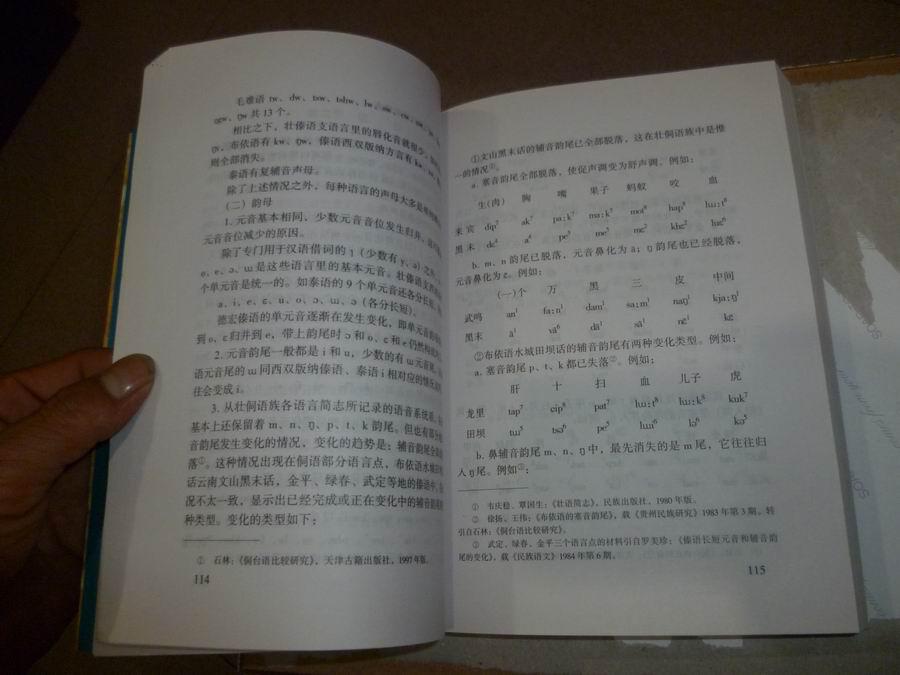 毛难语 tw、dw、tsw、tshw、lw、
ŋgw、ŋw 共 13 个。
相比之下，壮傣语支语言里的唇化音就很少，
ŋ，布依语有 kw、ŋw，傣语西双版纳方言有 kw、
则全部消失。
泰语有复辅音声母。
除了上述情况之外，每种语言的声母大多是
（二）韵母
1. 元音基本相同、少数元音音位发生归并，
元音音位减少的原因。
除了专门用于汉语借词的 ʅ（少数有 y、ə）之外，
o、e、ɔ、ɯ 是这些语言里的基本元音。壮傣语支
个单元音是统一的。如泰语的 9 个单元音还各分长短，
a、i、e、ɛ、u、o、ɔ、ɯ、ə（各分长短）。
德宏傣语的单元音逐渐在发生变化，即单元音
到 o、ɛ 归并到 e，带上韵尾时 ɔ 和 o、ɛ 和 e 仍然
2. 元音韵尾一般都是 i 和 u，少数的有 ɯ 元音
语元音尾的 ɯ 同西双版纳傣语、泰语 i 相对应的
往会变成 i。
3. 从壮侗语族各语言简志所记录的语音系统
基本上还保留着 m、n、ŋ、p、t、k 韵尾。但也有部分
音韵尾发生变化的情况，变化的趋势是：辅音韵尾全
落①。这种情况出现在侗语部分语言点，布依语水城
话云南文山黑末话，金平、绿春、武定等地的傣语中，
况不太一致，显示出已经完成或正在变化中的辅音韵尾
种类型。变化的类型如下：
① 石林：《侗台语比较研究》，天津古籍出版社，1997 年版。
114
①文山黑末话的辅音韵尾已全部脱落，这在壮侗语族中是惟
一的情况①。
a. 塞音韵尾全部脱落，使促声调变为舒声调。例如：
生(肉) 胸 嘴 果子 蚂蚁 咬 血
来宾 dip⁷ ak⁷ pa:k⁷ ma:k⁷ mot⁸ hap⁸ lɯ:t⁸
黑末 de⁴ a⁴ pe⁵ me⁵ me² khe² lɯe⁶
b. m、n 韵尾已脱落，元音鼻化为 ã；ŋ 韵尾也已经脱落，
元音鼻化为 ẽ。例如：
(一)个 万 黑 三 皮 中间
武鸣 an¹ fa:n¹ dam¹ sa:m¹ naŋ¹ kja:ŋ¹
黑末 ã¹ vã⁶ dã¹ sã¹ nẽ¹ kẽ
②布依语水城田坝话的辅音韵尾有两种变化类型。例如：
a. 塞音韵尾 p、t、k 都已失落②。例如：
肝 十 扫 血 儿子 虎
龙里 tap⁷ cip⁸ pat⁷ lɯ:t⁸ lɯ:k⁸ kuk⁷
田坝 tɯ⁵ tsə⁶ pe⁵ luɯ⁶ lə⁶ kə⁵
b. 鼻辅音韵尾 m、n、ŋ 中，最先消失的是 m 尾，它往往归
入 ŋ 尾。例如③：
① 韦庆稳、覃国生：《壮语简志》，民族出版社，1980 年版。
② 徐扬、王伟：《布依语的塞音韵尾》，载《贵州民族研究》1983 年第 3 期。转
引自石林：《侗台语比较研究》。
③ 武定、绿春、金平三个语言点的材料引自罗美珍：《傣语长短元音和辅音韵
尾的变化》，载《民族语文》1984 年第 6 期。
115